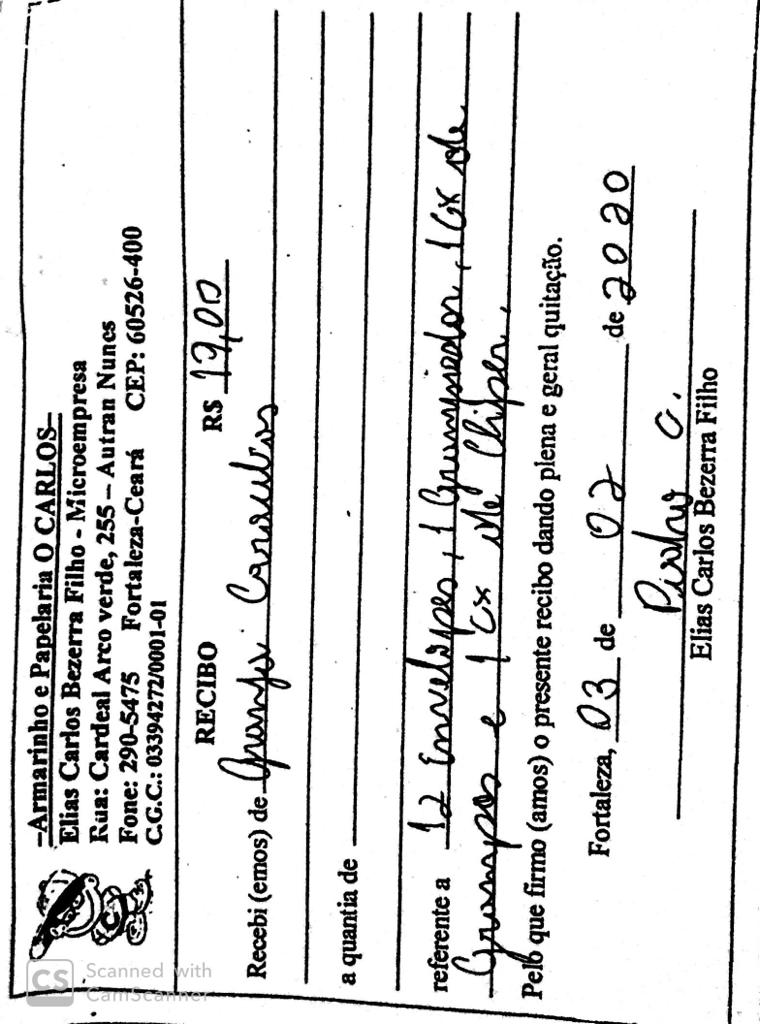 Armarinho e Papelaria O CARLOS
Elias Carlos Bezerra Filho - Microempresa
Rua: Cardeal Arco verde, 255 – Autran Nunes
Fone: 290-5475 Fortaleza-Ceará CEP: 60526-400
C.G.C.: 03394272/0001-01
RECIBO R$ 19,00
Recebi (emos) de Granja
a quantia de
referente a 12 Envelopes, 1 Grampeador, 1 Cx de
Grampos e 1 Cx de Clipes.
Pelo que firmo (amos) o presente recibo dando plena e geral quitação.
Fortaleza, 03 de 02 de 2020
Elias Carlos Bezerra Filho
CS Scanned with
CamScanner